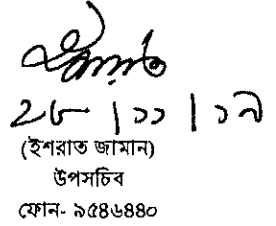 ২৮|১১|১৯
(ইশরাত জামান)
উপসচিব
ফোন- ৯৫৪৬৪৪০